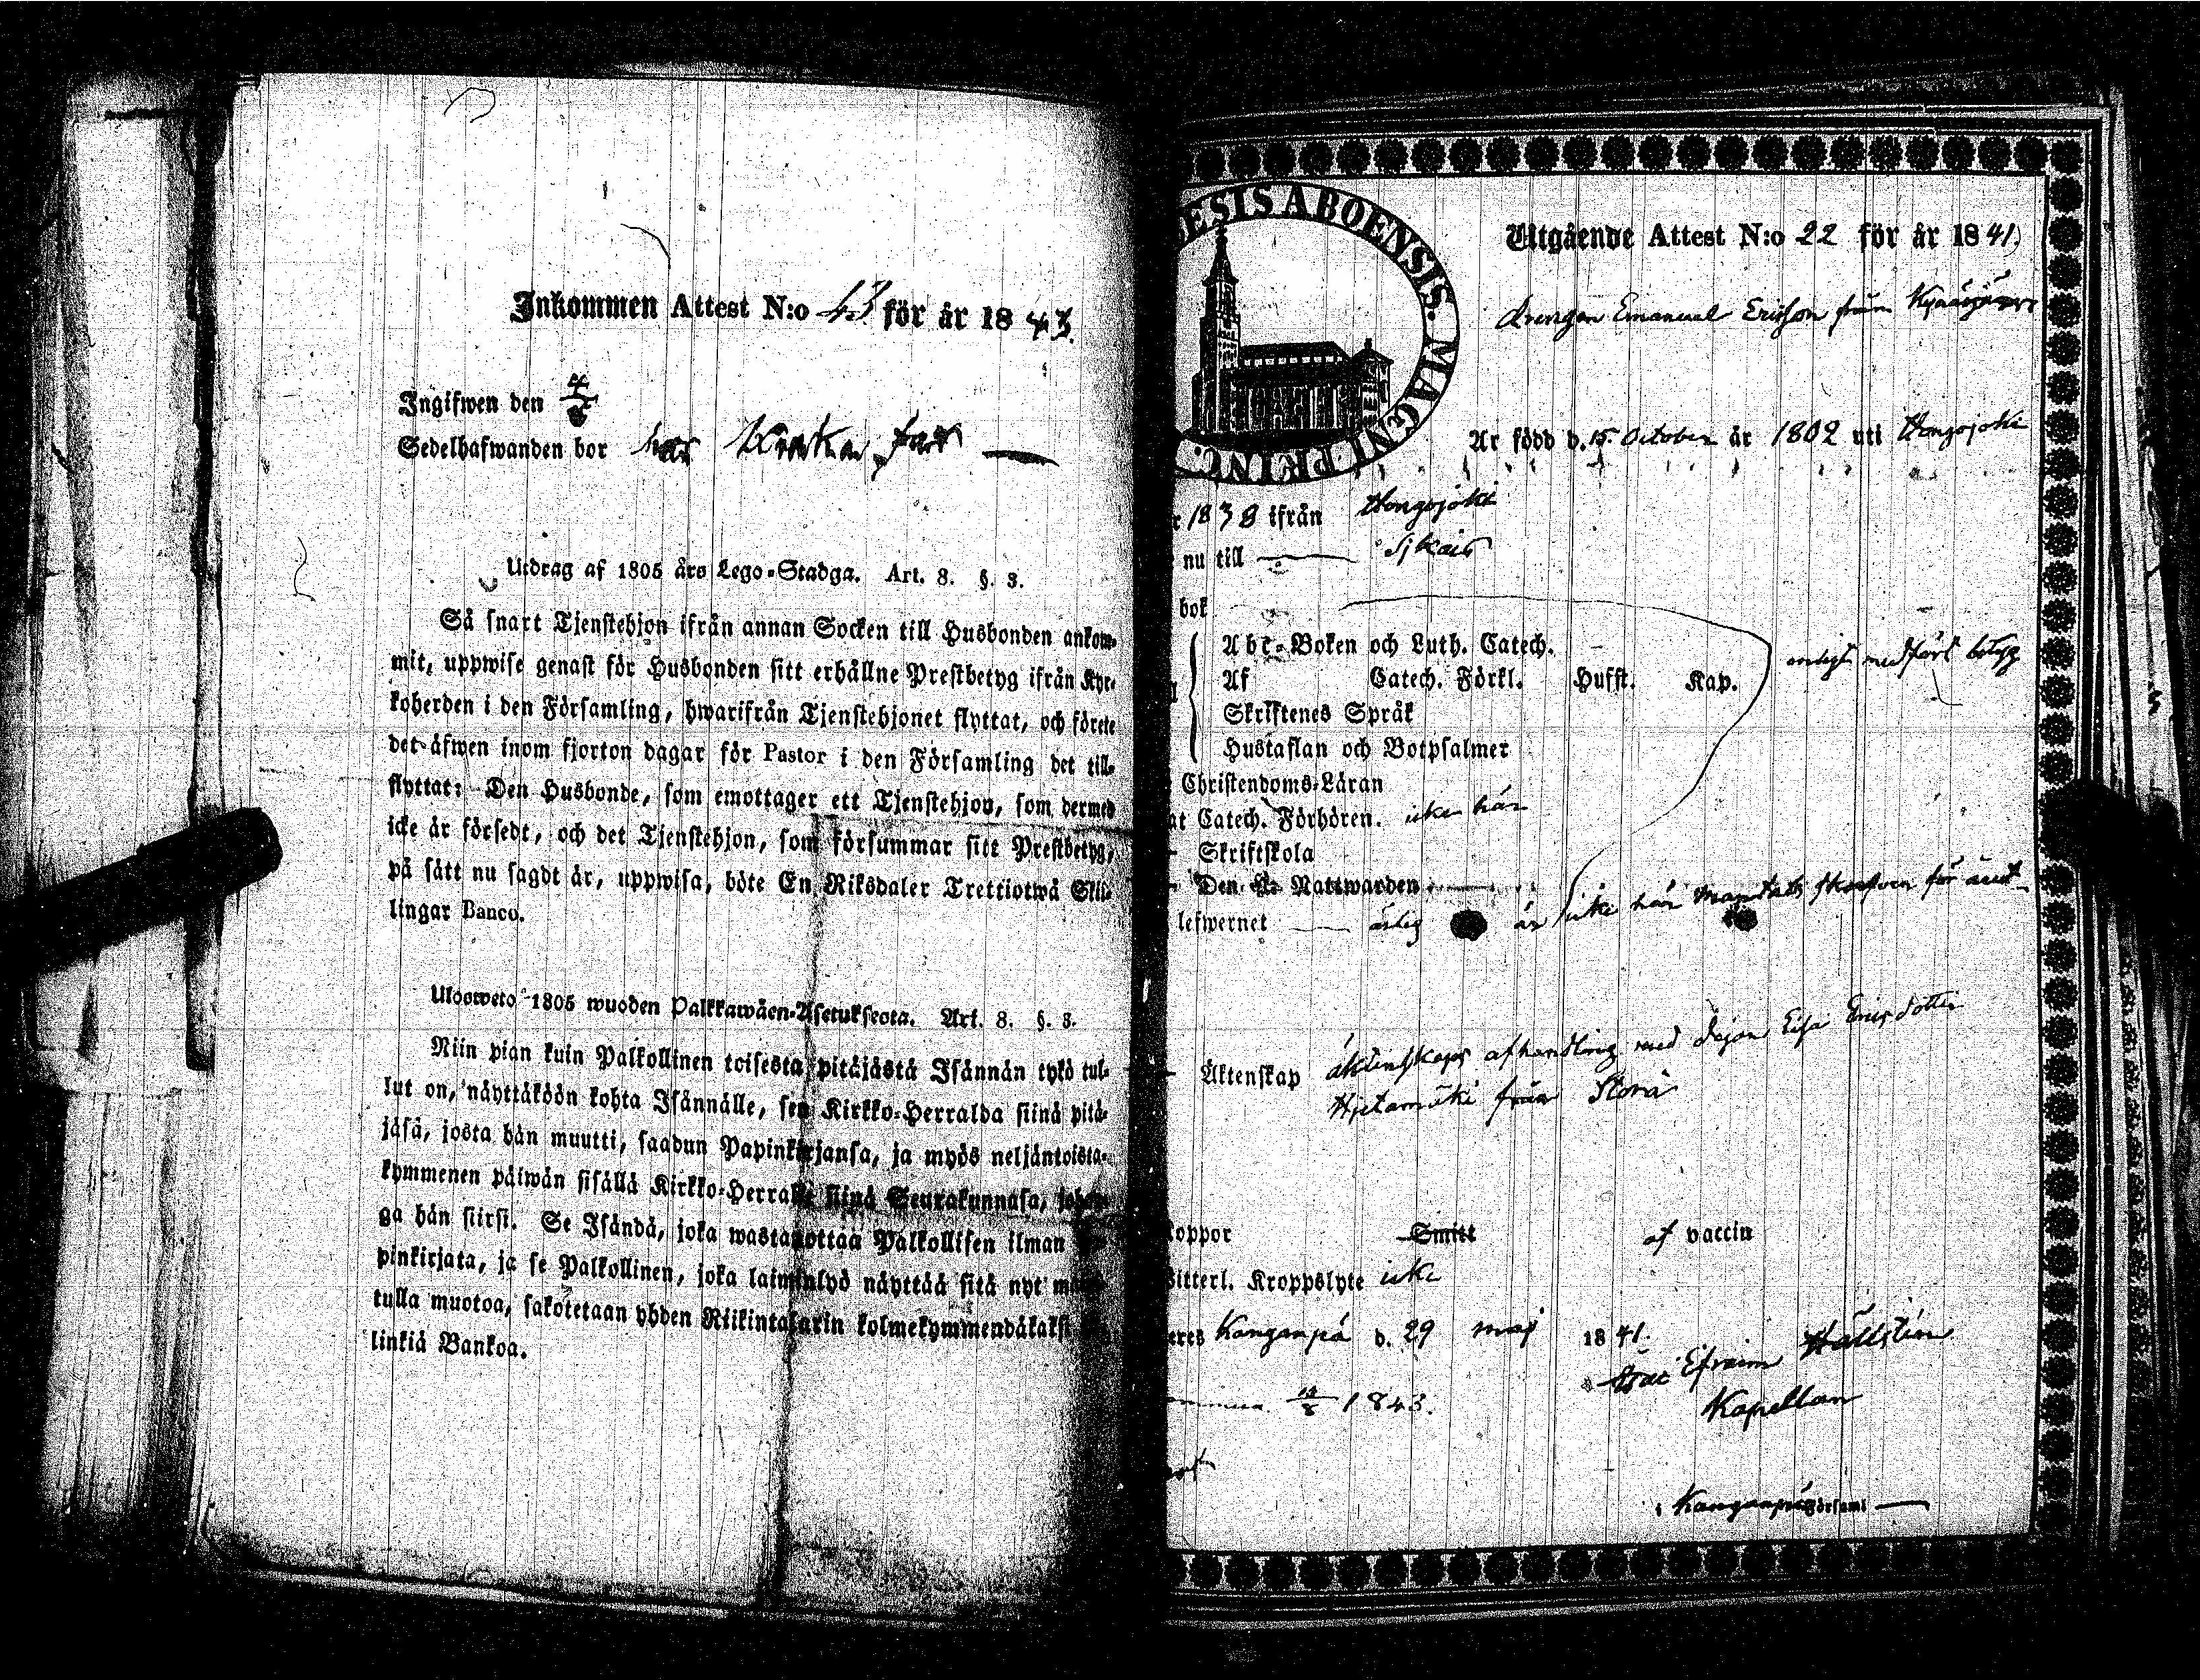 Inkommen Attest N:o 43 för år 1843.
Ingifwen den 4/6
Sedelhafwanden bor hos
Utdrag af 1805 års Lego-Stadga. Art. 8. §. 3.
Så snart Tjenstehjon ifrån annan Socken till Husbonden ankom-
mit, uppwise genast för Husbonden sitt erhållne Prestbetyg ifrån Kyr-
koherden i den Församling, hwarifrån Tjenstehjonet flyttat, och förete
det äfwen inom fjorton dagar för Pastor i den Församling det till-
flyttat: Den Husbonde, som emottager ett Tjenstehjon, som dermed
icke är försedt, och det Tjenstehjon, som försummar sitt Prestbetyg,
på sätt nu sagdt är, uppwisa, böte En Riksdaler Trettiotwå Skil-
lingar Banco.
Ulosweto 1805 wuoden Palkkawäen-Asetuksesta. Art. 8. §. 3.
Niin pian kuin Palkollinen toisesta pitäjästä Isännän tykö tul-
lut on, näyttäköön kohta Isännälle, sen Kirkko-Herralda siinä pitä-
jäsä, josta hän muutti, saadun Papinkirjansa, ja myös neljäntoista-
kymmenen päiwän sisällä Kirkko-Herralle siinä Seurakunnasa, johon-
ga hän siirsi. Se Isändä, joka wastaanottaa Palkollisen ilman
pinkirjata, ja se Palkollinen, joka laiminlyö näyttää sitä nyt
tulla muotoa, sakotetaan yhden Riikintalarin kolmekymmendäkaksi
linkiä Bankoa.
ESIS ABOENSIS. MAGNI PRINC.
Utgående Attest N:o 22 för år 1841)
drengen Emanuel Ericsson från
Är född d. 15 October år 1802 uti Hongojoki
1838 ifrån Hongojoki
nu till Sjkais
bok
Abc-Boken och Luth. Catech.
Af Catech. Förkl. Husst. Kap. enligt medfört betyg
Skriftenes Språk
Hustaflan och Botpsalmer
Christendoms-Läran
at Catech. Förhören. icke här
Skriftskola
Den H. Nattwarden
lefwernet ärlig är icke här mantals skrefven för året
Äktenskap äktenskaps afhandling med Pigan Eisa Ericsdotter
Hietamäki från Storå
koppor Smitt af vaccin
Witterl. Kroppslyte icke
Kanganpä d. 29 maj 1841.
Efraim Hällsten
Kapellan
14/8 1843.
i Kanganpä Församl